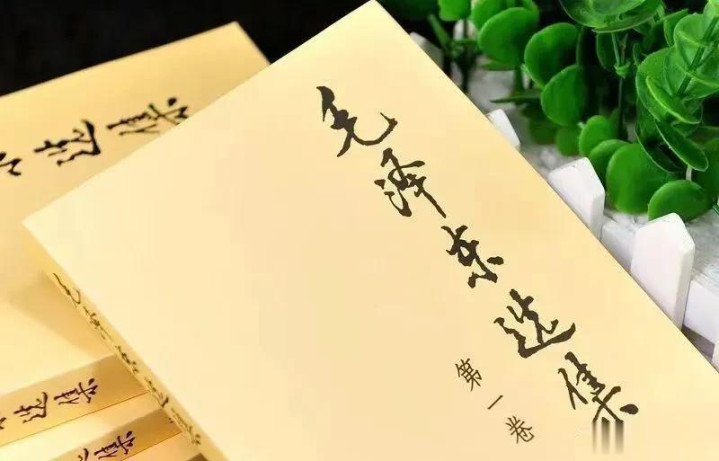 毛泽东选集
第一卷
选集
毛泽东选集
选集